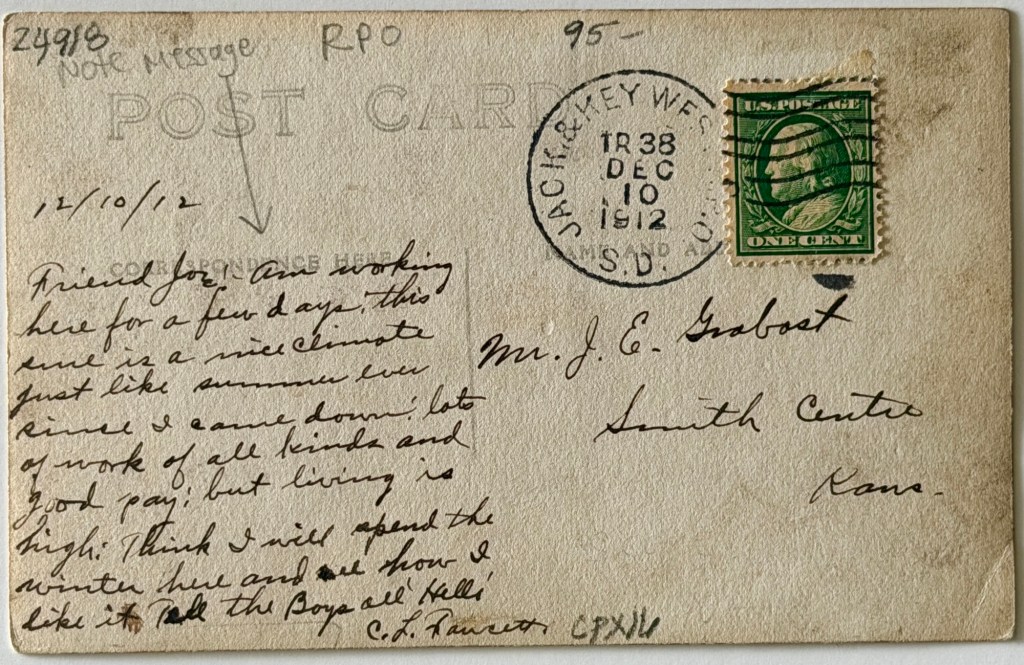 24918
Note Message
RPO
95-
POST CARD
JACK. & KEY WES
TR 38
DEC
10
1912
S.D.
U.S. POSTAGE
ONE CENT
12/10/12
CORRESPONDENCE HERE
NAME AND A
Friend Joe! Am working
here for a few days! this
sure is a nice climate
just like summer ever
since I came down! lots
of work of all kinds and
good pay! but living is
high: Think I will spend the
winter here and see how I
like it Tell the Boys all 'Hello'
C. L. Fawcett
Mr. J. E. Grabast
Smith Centre
Kans.
CPX16